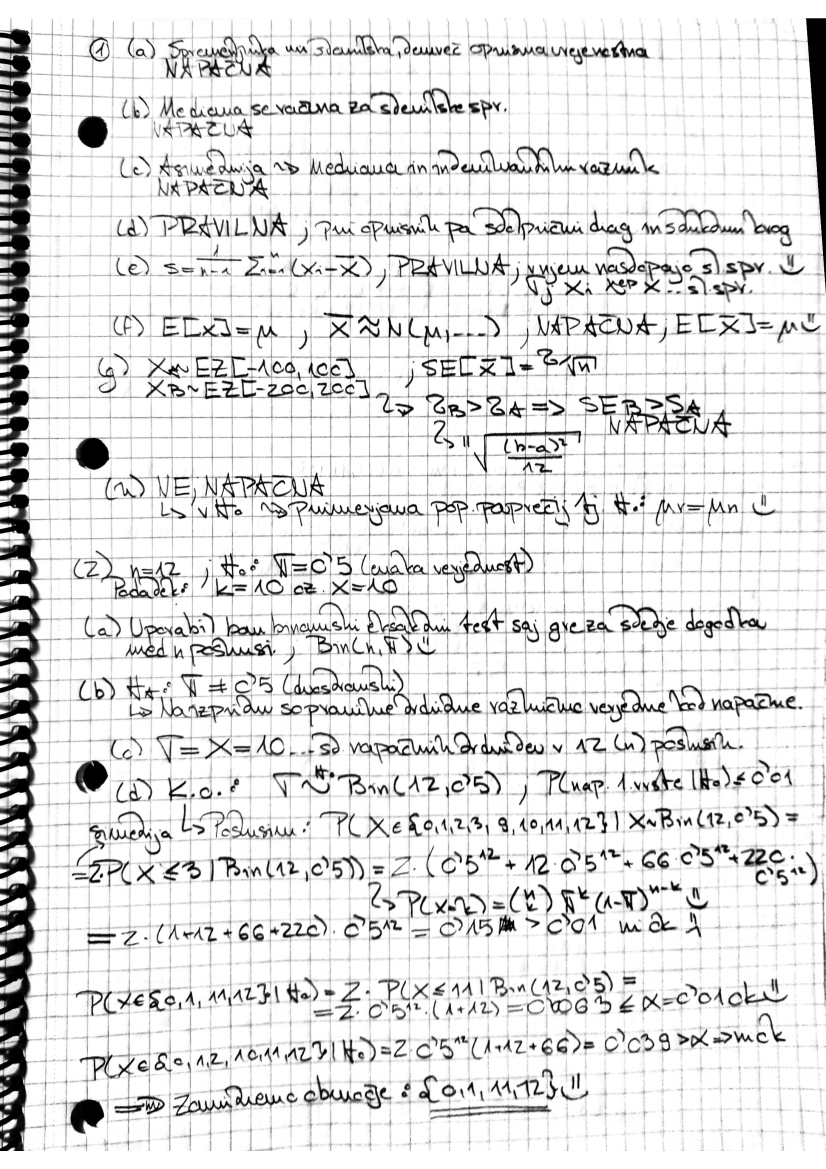 ① (a) Spremenljivka ni številska, temveč opisna urejenostna
NAPAČNA
(b) Mediana se računa za številske spr.
NAPAČNA
(c) Asimetrija ~> Mediana in interkvartilni razmik
NAPAČNA
(d) PRAVILNA ; pri opisnih pa stolpični diag in strukturni krog
(e) s = 1/(n-1) Σⁿᵢ₌₁ (xᵢ - x̄) , PRAVILNA ; v njem nastopajo sl spr.
tj xᵢ x̄ sl spr.
(f) E[X] = μ , X̄ ≈ N(μ, ...) , NAPAČNA , E[X̄] = μ
(g) XA ~ EZ[-100, 100] ; SE[X̄] = σ/√n
XB ~ EZ[-200, 200]
σB > σA => SEB > SA
NAPAČNA
√((b-a)²/12)
(h) NE, NAPAČNA
↳ v H₀ ~> Primerjava pop. povprečij tj H₀: μr = μn
(2) n=12 ; H₀: π = 0'5 (enaka verjetnost)
Podatek: k=10 oz. X=10
(a) Uporabil bom binomski eksaktni test saj gre za štetje dogodka
med n poskusi , Bin(n, π)
(b) HA: π ≠ 0'5 (dvostranski)
so pravilne različno verjetne kot napačne.
(c) T = X = 10 ... št napačnih v 12 (n) poskusih.
(d) K.o.: T ~ᴴ⁰ Bin(12, 0'5) , P(nap. 1. vrste | H₀) ≤ 0'01
simetrija ↳ Poskusimo: P(X ∈ {0,1,2,3, 9,10,11,12} | X~Bin(12, 0'5) =
= 2·P(X ≤ 3 | Bin(12, 0'5)) = 2·(0'5¹² + 12·0'5¹² + 66·0'5¹² + 220·0'5¹²)
↳ P(X=k) = (n k) πᵏ (1-π)ⁿ⁻ᵏ
= 2·(1+12+66+220)·0'5¹² = 0'15 > 0'01 ni ok
P(X∈{0,1,11,12} | H₀) = 2·P(X ≤ 11 | Bin(12, 0'5) =
= 2·0'5¹²·(1+12) = 0'0063 ≤ α = 0'01 ok
P(X∈{0,1,2,10,11,12} | H₀) = 2·0'5¹²(1+12+66) = 0'039 > α => ni ok
=> Zavrnitveno območje: {0,1,11,12}